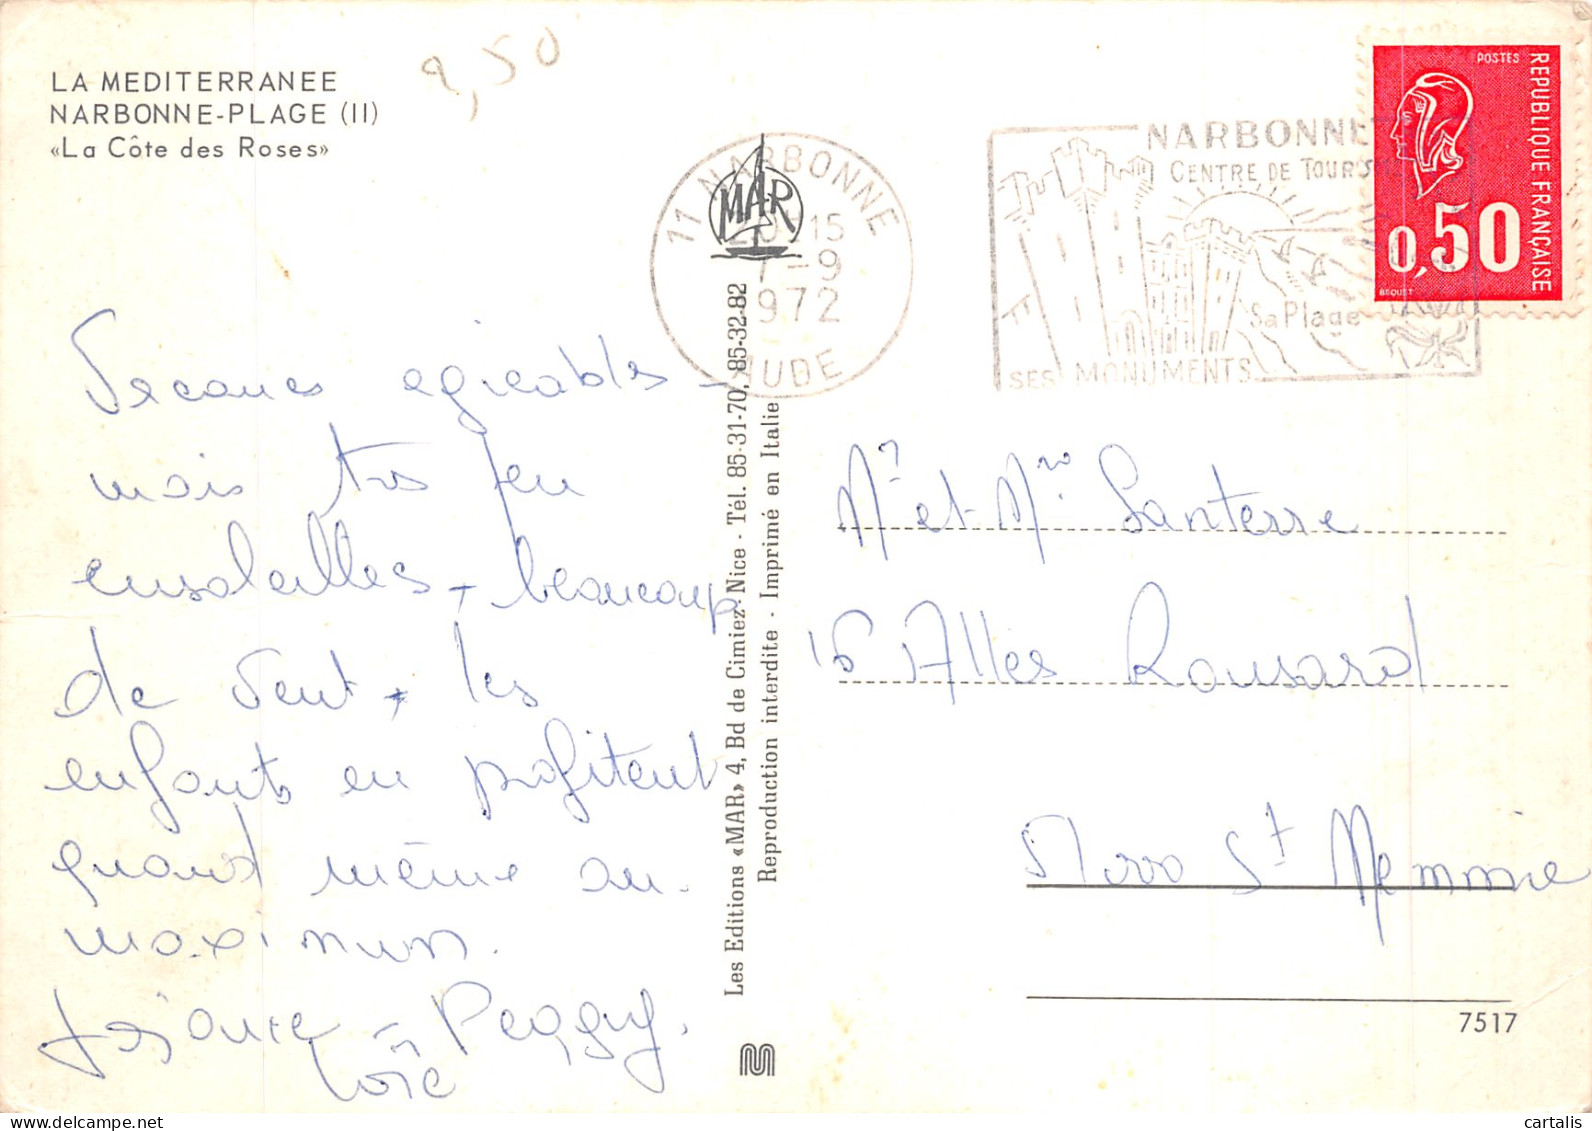 LA MEDITERRANEE
NARBONNE-PLAGE (II)
«La Côte des Roses»
2,50
Vacances agréables -
mais très peu
ensoleillées - beaucoup
de vent - les
enfants en profitent
quand même au
maximum.
Peggy.
Loïc
MAR
Les Editions «MAR» 4, Bd de Cimiez-Nice - Tél. 85-31-70, 85-32-82
Reproduction interdite - Imprimé en Italie
11 NARBONNE
20H15
7-9
1972
AUDE
NARBONNE
CENTRE DE TOURISME
Sa Plage
SES MONUMENTS
POSTES
REPUBLIQUE FRANÇAISE
0,50
BEQUET
Mr et Mme Santerre
16 Allées Ronsard
51000 St Memmie
7517
cartalis